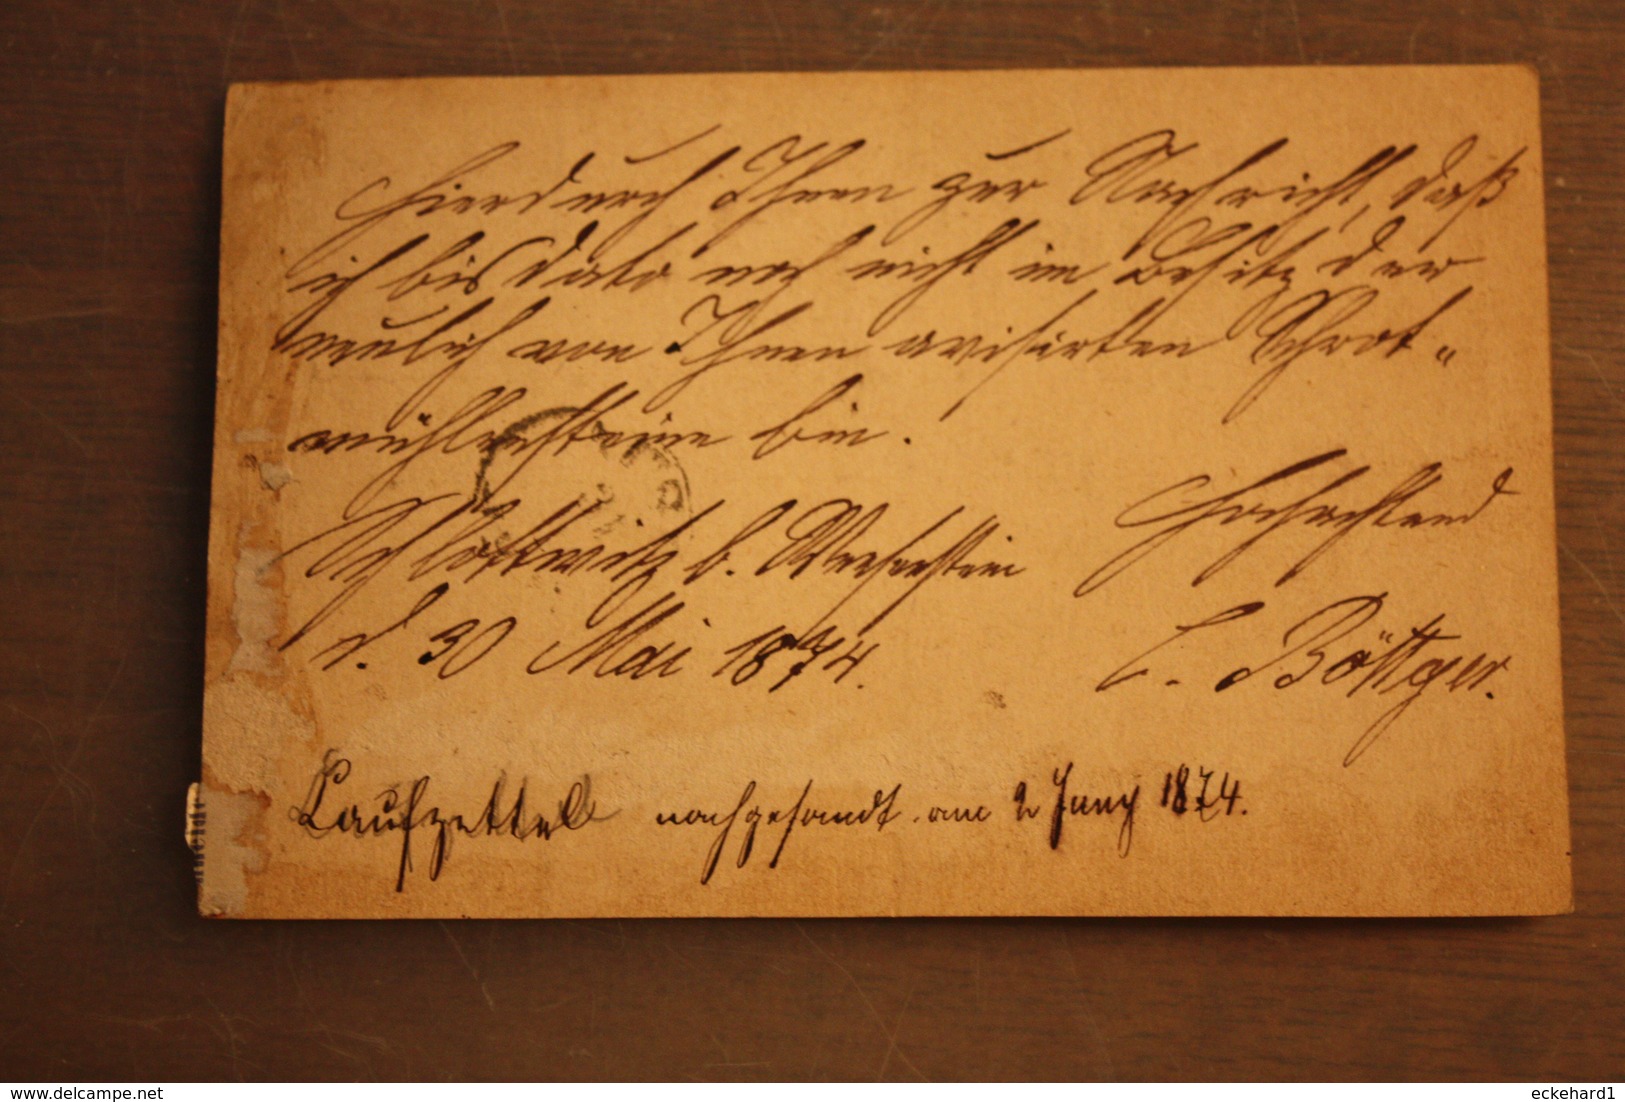 Hierdurch Ihnen zur Nachricht, daß
ich bis dato noch nicht im Besitz der
neulich von Ihnen avisirten Schrot-
mühlensteine bin.
Hochachtend
Schlottwitz b. Weesenstein
d. 30 Mai 1874.
C. Böttger.
Laufzettel nachgesandt. am 2 Juny 1874.
delcampe.net
eckehard1